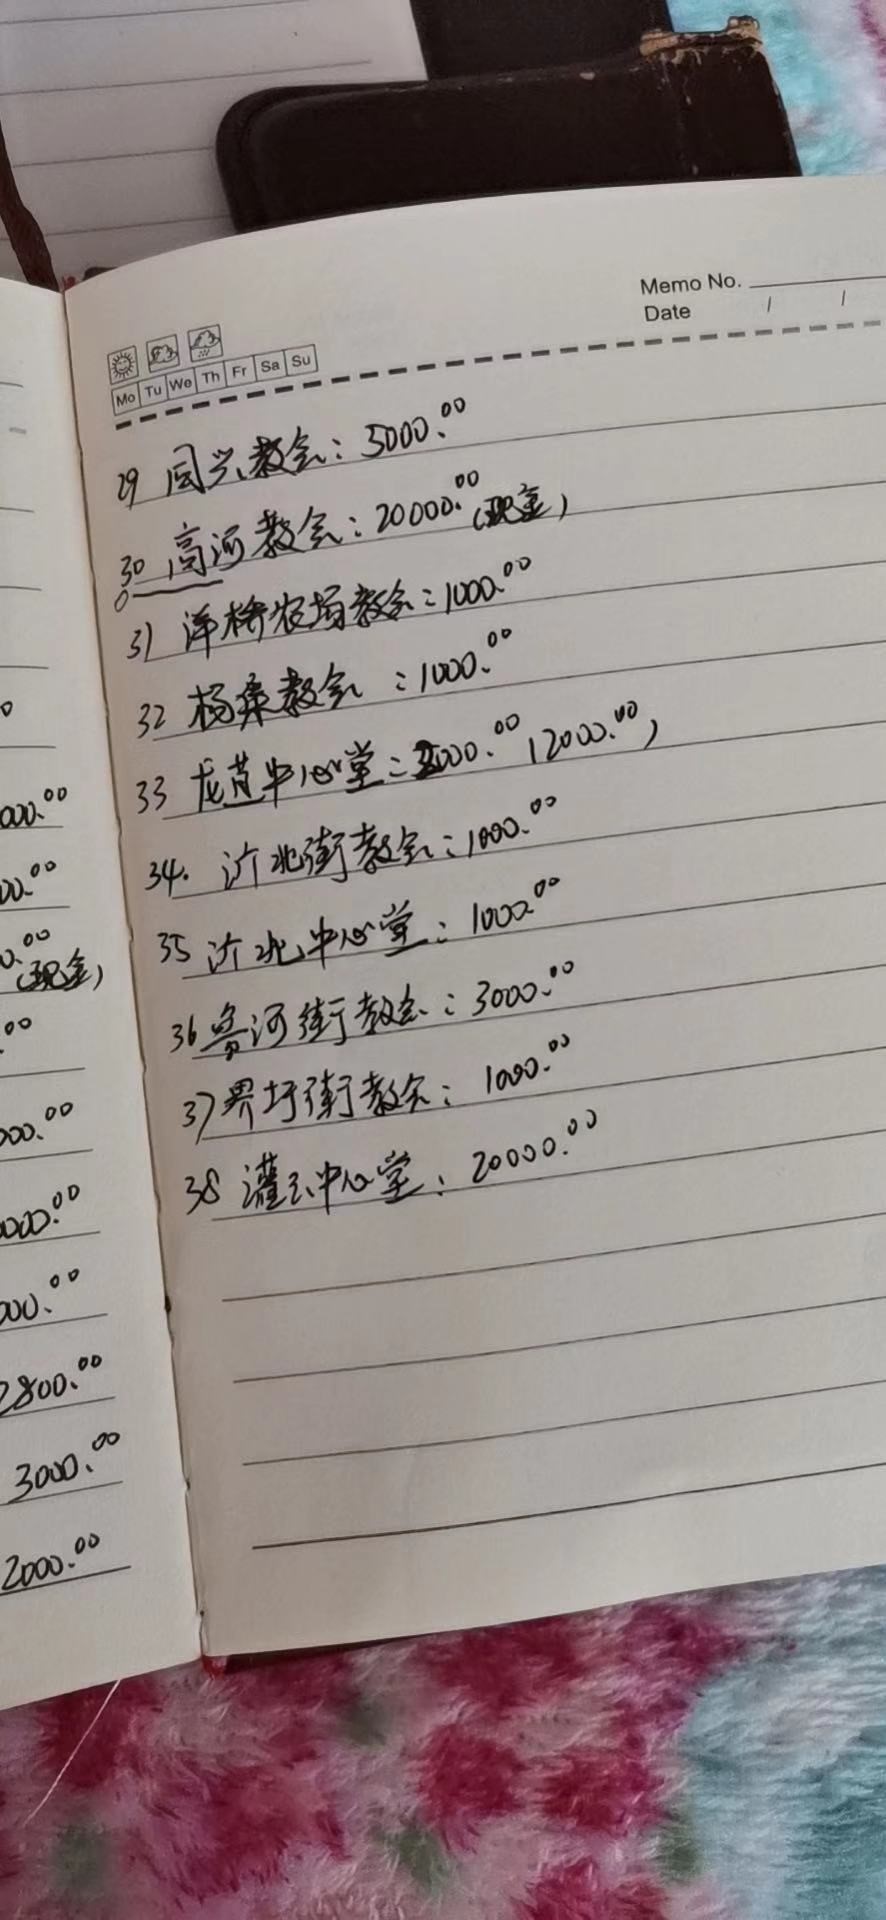 Memo No.
Date / /
Mo Tu We Th Fr Sa Su
29 同兴教会：5000.00
30 高河教会：20000.00（现金）
31 洋桥农场教会：1000.00
32 杨集教会：1000.00
33 龙苴中心堂：2000.00，12000.00，
34. 沂北街教会：1000.00
35 沂北中心堂：1000.00
36 鲁河街教会：3000.00
37 界圩街教会：1000.00
38 灌云中心堂：20000.00
000.00
00.00
0.00（现金）
.00
000.00
0000.00
000.00
2800.00
3000.00
2000.00